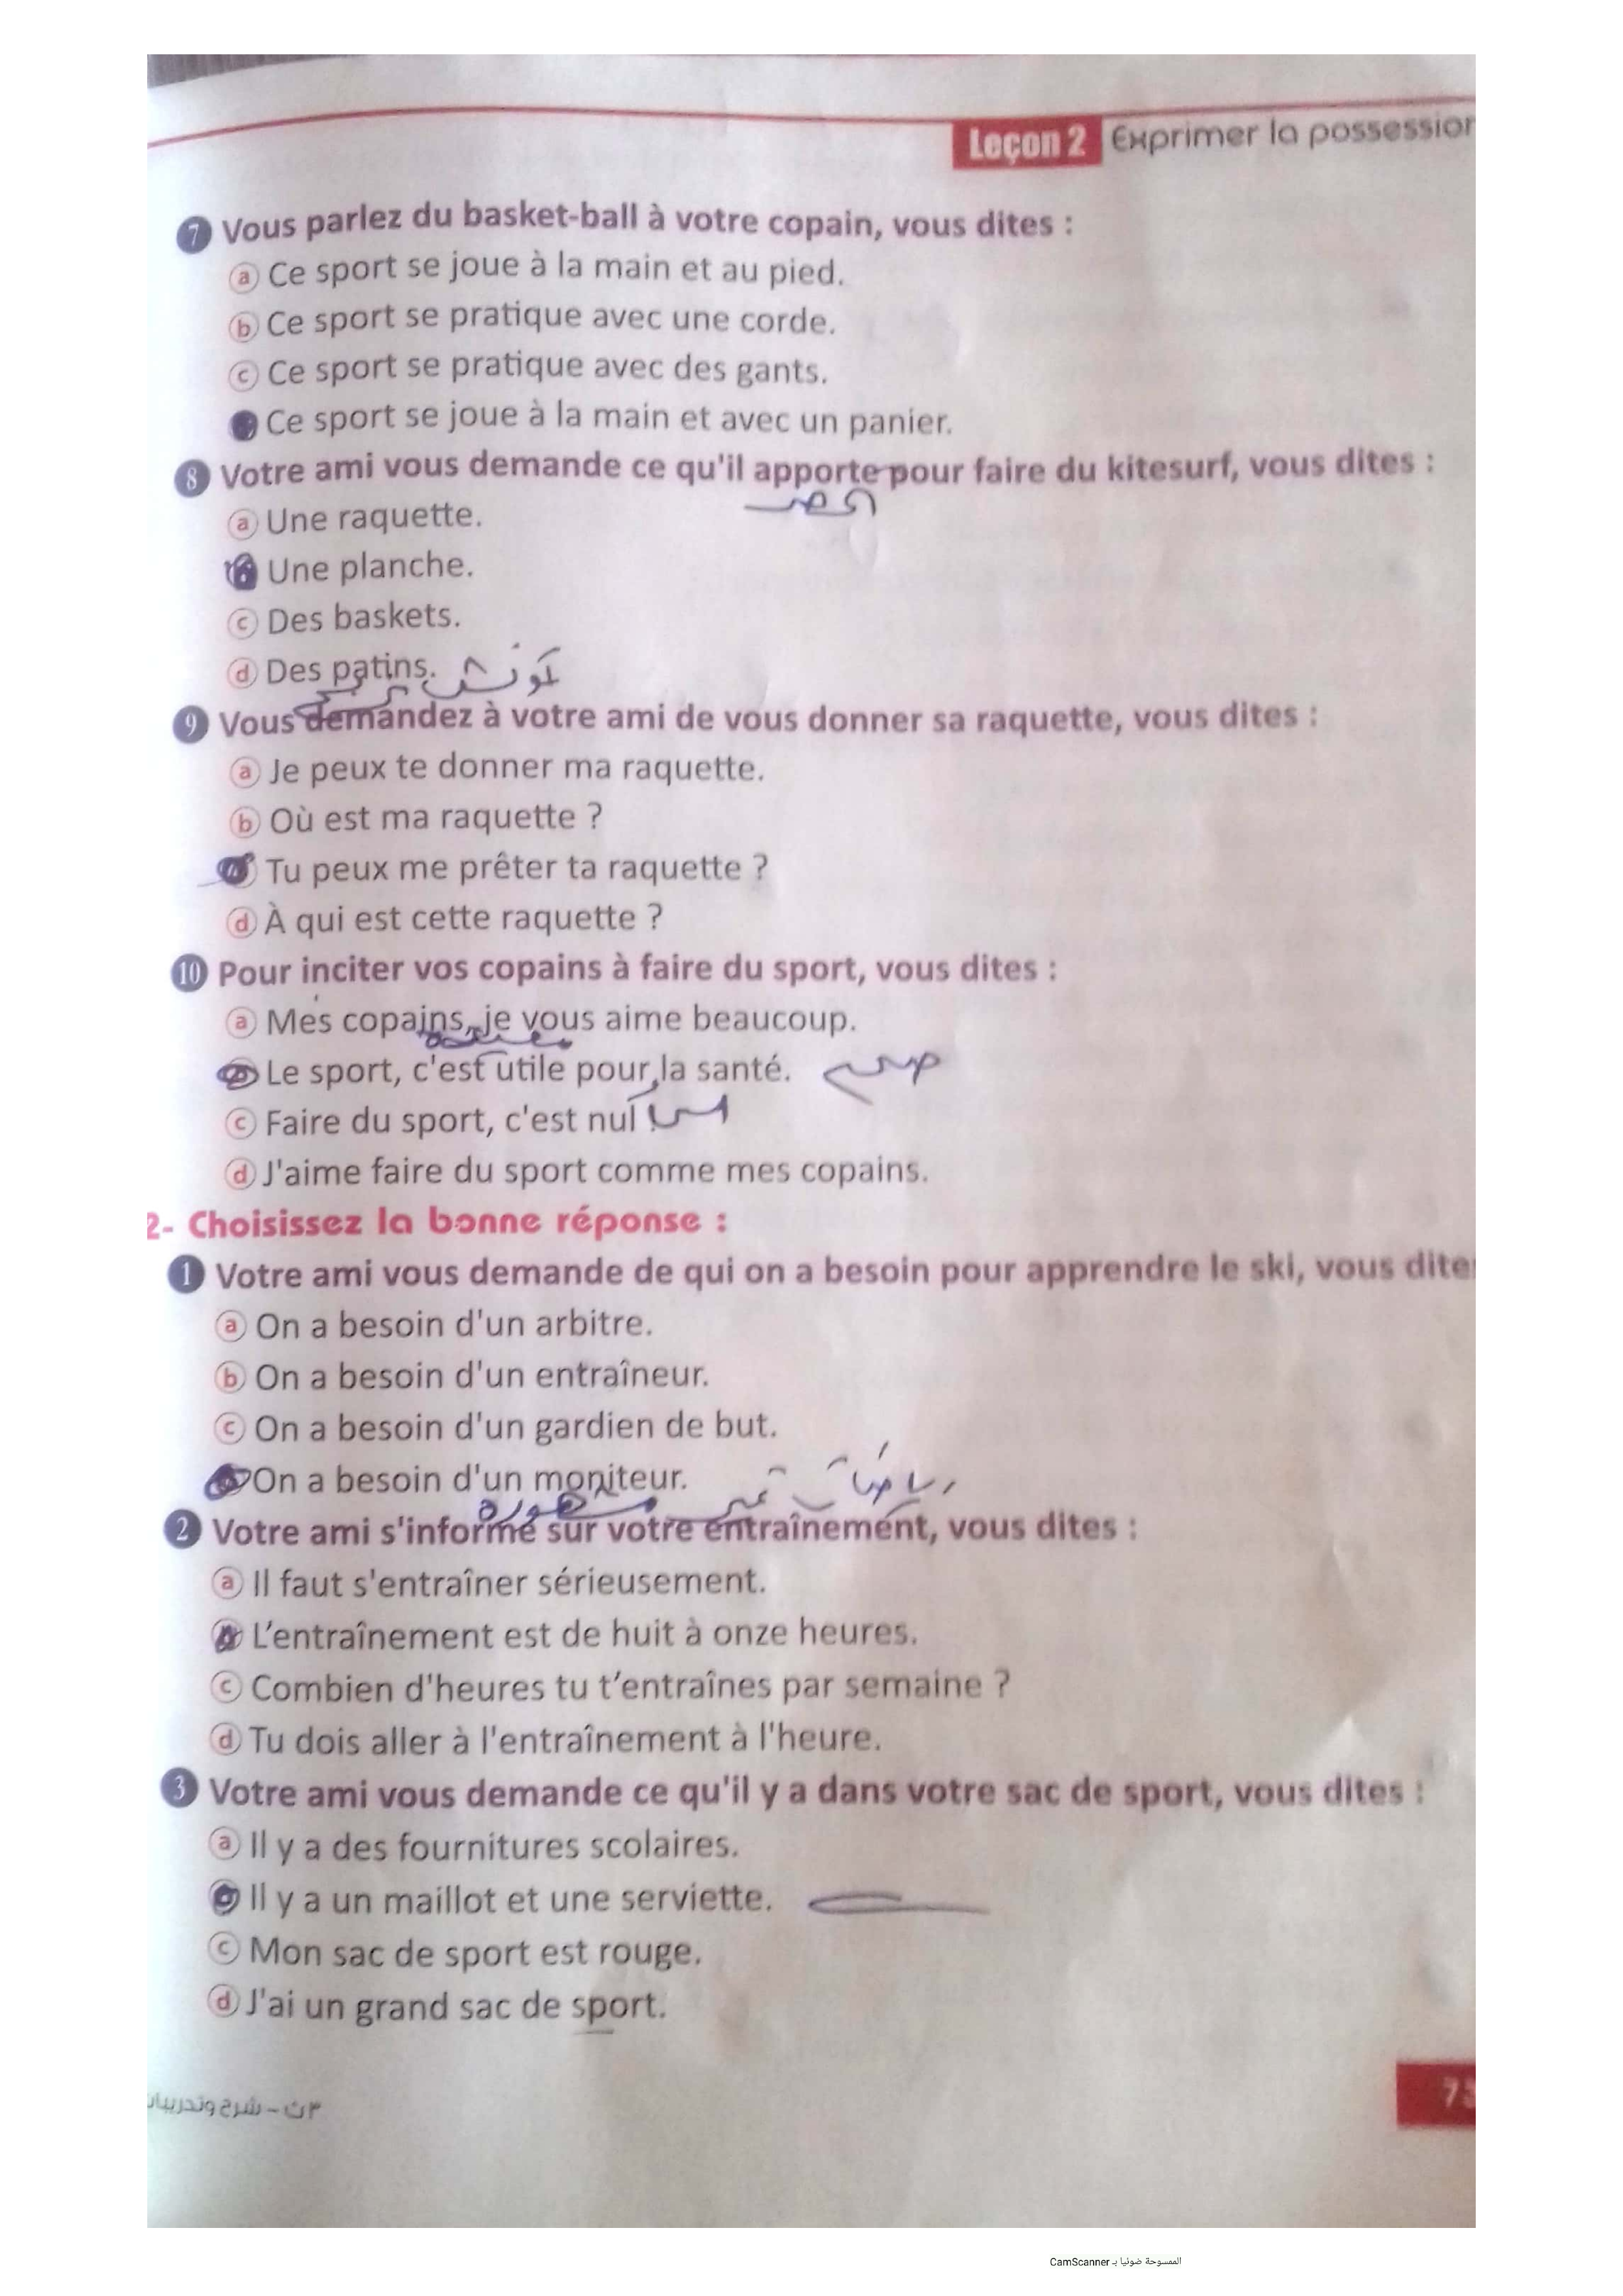 Leçon 2 Exprimer la possession
7 Vous parlez du basket-ball à votre copain, vous dites :
a Ce sport se joue à la main et au pied.
b Ce sport se pratique avec une corde.
c Ce sport se pratique avec des gants.
Ce sport se joue à la main et avec un panier.
8 Votre ami vous demande ce qu'il apporte pour faire du kitesurf, vous dites :
a Une raquette.
b Une planche.
c Des baskets.
d Des patins.
9 Vous demandez à votre ami de vous donner sa raquette, vous dites :
a Je peux te donner ma raquette.
b Où est ma raquette ?
Tu peux me prêter ta raquette ?
d À qui est cette raquette ?
10 Pour inciter vos copains à faire du sport, vous dites :
a Mes copains, je vous aime beaucoup.
Le sport, c'est utile pour la santé.
c Faire du sport, c'est nul !
d J'aime faire du sport comme mes copains.
2- Choisissez la bonne réponse :
1 Votre ami vous demande de qui on a besoin pour apprendre le ski, vous dites
a On a besoin d'un arbitre.
b On a besoin d'un entraîneur.
c On a besoin d'un gardien de but.
On a besoin d'un moniteur.
2 Votre ami s'informe sur votre entraînement, vous dites :
a Il faut s'entraîner sérieusement.
b L’entraînement est de huit à onze heures.
c Combien d'heures tu t’entraînes par semaine ?
d Tu dois aller à l'entraînement à l'heure.
3 Votre ami vous demande ce qu'il y a dans votre sac de sport, vous dites :
a Il y a des fournitures scolaires.
b Il y a un maillot et une serviette.
c Mon sac de sport est rouge.
d J'ai un grand sac de sport.
٣ث - شرح وتدريبات
73
الممسوحة ضوئيا بـ CamScanner